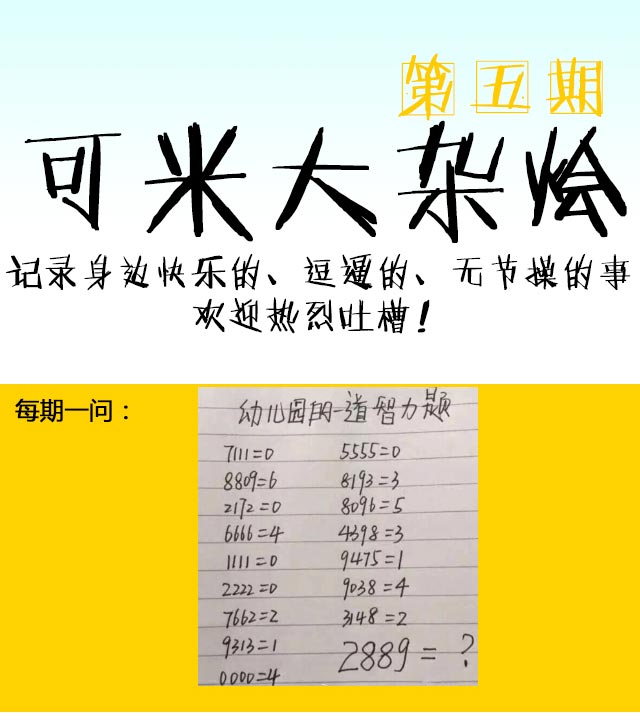 第五期
可米大杂烩
记录身边快乐的、逗逼的、无节操的事
欢迎热烈吐槽！
每期一问：
幼儿园的一道智力题
7111=0
8809=6
2172=0
6666=4
1111=0
2222=0
7662=2
9313=1
0000=4
5555=0
8193=3
8096=5
4398=3
9475=1
9038=4
3148=2
2889=？